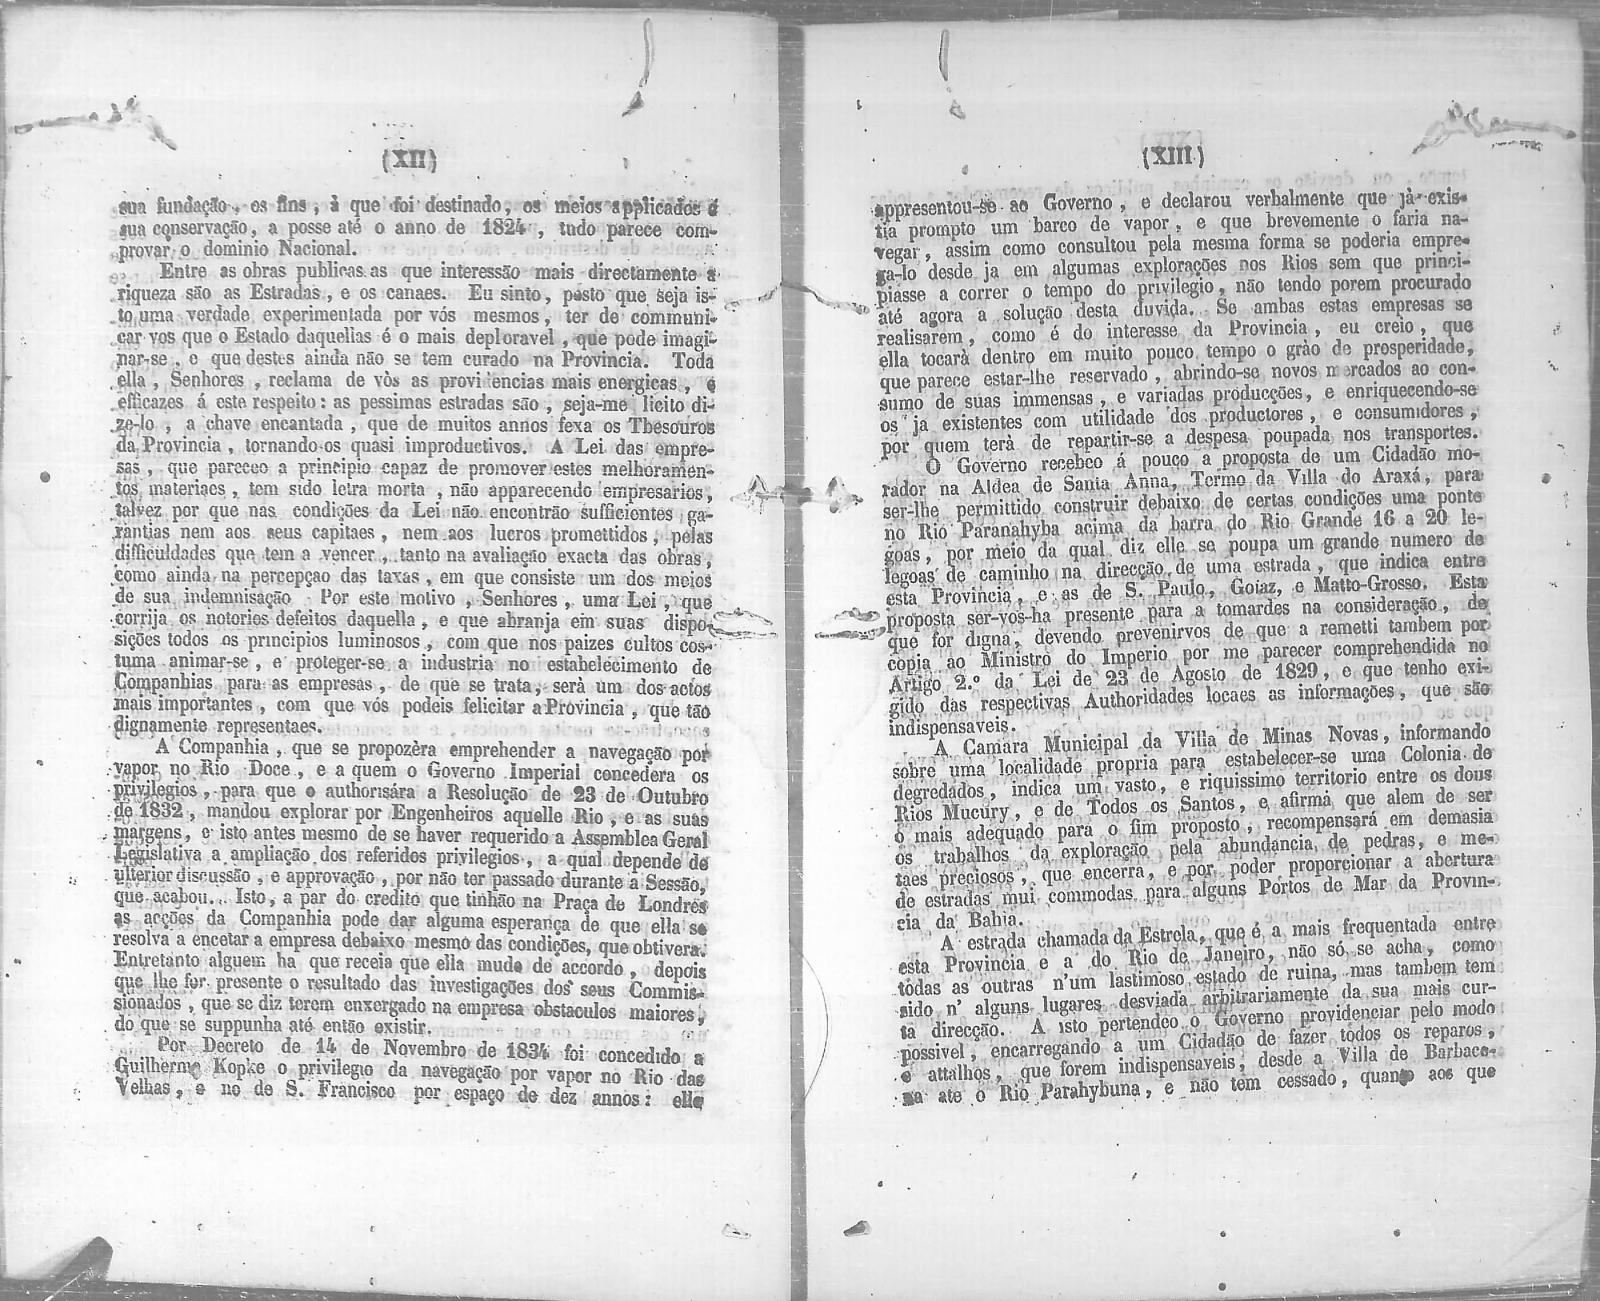 (XII)
sua fundação, os fins, à que foi destinado, os meios applicados é
sua conservação, a posse até o anno de 1824, tudo parece com-
provar o dominio Nacional.
Entre as obras publicas as que interessão mais directamente a
riqueza são as Estradas, e os canaes. Eu sinto, posto que seja is-
to uma verdade experimentada por vós mesmos, ter de communi-
car vos que o Estado daquellas é o mais deploravel, que pode imagi-
nar-se, e que destes ainda não se tem curado na Provincia. Toda
ella, Senhores, reclama de vòs as provi encias mais energicas, e
efficazes á este respeito: as pessimas estradas são, seja-me licito di-
ze-lo, a chave encantada, que de muitos annos fexa os Thesouros
da Provincia, tornando-os quasi improductivos. A Lei das empre-
sas, que pareceo a principio capaz de promover estes melhoramen-
tos materiaes, tem sido letra morta, não apparecendo empresarios,
talvez por que nas condições da Lei não encontrão sufficientes ga-
rantias nem aos seus capitaes, nem aos lucros promettidos, pelas
difficuldades que tem a vencer, tanto na avaliação exacta das obras,
como ainda na percepçao das taxas, em que consiste um dos meios
de sua indemnisação. Por este motivo, Senhores, uma Lei, que
corrija os notorios defeitos daquella, e que abranja em suas dispo-
sições todos os principios luminosos, com que nos paizes cultos cos-
tuma animar-se, e proteger-se a industria no estabelecimento de
Companhias para as empresas, de que se trata, serà um dos actos
mais importantes, com que vós podeis felicitar a Provincia, que tão
dignamente representaes.
A Companhia, que se propozèra emprehender a navegação por
vapor no Rio Doce, e a quem o Governo Imperial concedera os
privilegios, para que o authorisára a Resolução de 23 de Outubro
de 1832, mandou explorar por Engenheiros aquelle Rio, e as suas
margens, e isto antes mesmo de se haver requerido a Assemblea Geral
Legislativa a ampliação dos referidos privilegios, a qual depende de
ulterior discussão, e approvação, por não ter passado durante a Sessão,
que acabou. Isto, a par do credito que tinhão na Praça de Londres
as acções da Companhia pode dar alguma esperança de que ella se
resolva a encetar a empresa debaixo mesmo das condições, que obtivera.
Entretanto alguem ha que receia que ella mude de accordo, depois
que lhe for presente o resultado das investigações dos seus Commis-
sionados, que se diz terem enxergado na empresa obstaculos maiores,
do que se suppunha até então existir.
Por Decreto de 14 de Novembro de 1834 foi concedido a
Guilherme Kopke o privilegio da navegação por vapor no Rio das
Velhas, e no de S. Francisco por espaço de dez annos: elle
(XIII)
appresentou-se ao Governo, e declarou verbalmente que jà exis-
tia prompto um barco de vapor, e que brevemente o faria na-
vegar, assim como consultou pela mesma forma se poderia empre-
ga-lo desde ja em algumas explorações nos Rios sem que princi-
piasse a correr o tempo do privilegio, não tendo porem procurado
até agora a solução desta duvida. Se ambas estas empresas se
realisarem, como é do interesse da Provincia, eu creio, que
ella tocarà dentro em muito pouco tempo o grào de prosperidade,
que parece estar-lhe reservado, abrindo-se novos mercados ao con-
sumo de suas immensas, e variadas producções, e enriquecendo-se
os ja existentes com utilidade dos productores, e consumidores,
por quem terà de repartir-se a despesa poupada nos transportes.
O Governo recebeo á pouco a proposta de um Cidadão mo-
rador na Aldea de Santa Anna, Termo da Villa do Araxá, para
ser-lhe permittido construir debaixo de certas condições uma ponte
no Rio Paranahyba acima da barra do Rio Grande 16 a 20 le-
goas, por meio da qual diz elle se poupa um grande numero de
legoas de caminho na direcção de uma estrada, que indica entre
esta Provincia, e as de S. Paulo, Goiaz, e Matto-Grosso. Esta
proposta ser-vos-ha presente para a tomardes na consideração, de
que for digna, devendo prevenirvos de que a remetti tambem por
copia ao Ministro do Imperio por me parecer comprehendida no
Artigo 2.º da Lei de 23 de Agosto de 1829, e que tenho exi-
gido das respectivas Authoridades locaes as informações, que são
indispensaveis.
A Camara Municipal da Villa de Minas Novas, informando
sobre uma localidade propria para estabelecer-se uma Colonia de
degredados, indica um vasto, e riquissimo territorio entre os dous
Rios Mucury, e de Todos os Santos, e afirma que alem de ser
o mais adequado para o fim proposto, recompensará em demasia
os trabalhos da exploração pela abundancia de pedras, e me-
taes preciosos, que encerra, e por poder proporcionar a abertura
de estradas mui commodas para alguns Portos de Mar da Provin-
cia da Bahia.
A estrada chamada da Estrela, que é a mais frequentada entre
esta Provincia e a do Rio de Janeiro, não só se acha, como
todas as outras n'um lastimoso estado de ruina, mas tambem tem
sido n' alguns lugares desviada arbitrariamente da sua mais cur-
ta direcção. A isto pertendeo o Governo providenciar pelo modo
possivel, encarregando a um Cidadão de fazer todos os reparos,
e attalhos, que forem indispensaveis, desde a Villa de Barbace-
na ate o Rio Parahybuna, e não tem cessado, quanto aos que